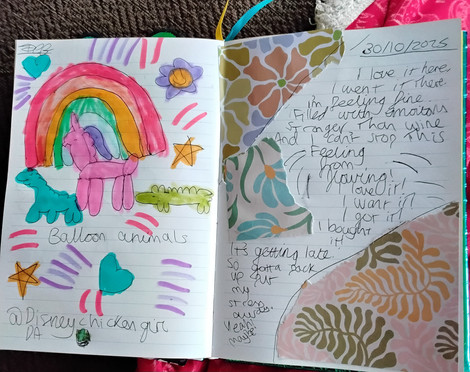 Balloon animals
@Disneychickengurl
DA
30/10/2025
I love it here,
I went it there
I'm feeling fine
Filled with emotions
stronger than wine
And I can't stop this
Feeling
from
flowing!
I love it!
I want it!
I got it!
I bought
it!
It's getting late
So gotta pack
up put
my
away.
Yeah!
maybe